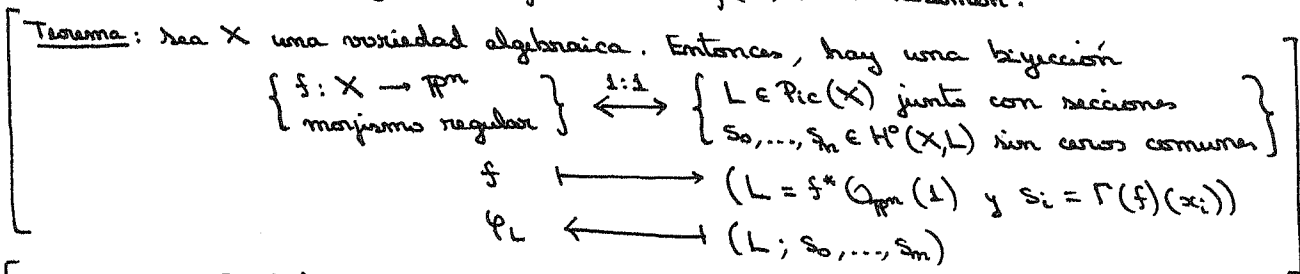 Teorema: sea X una variedad algebraica. Entonces, hay una biyección
{ f: X → ℙⁿ morfismo regular } ⟷ 1:1 { L ∈ Pic(X) junto con secciones
s₀,...,sₙ ∈ H⁰(X,L) sin ceros comunes }
f ⟼ (L = f* 𝒪_ℙⁿ(1) y sᵢ = Γ(f)(xᵢ))
φ_L ⟻ (L; s₀,...,sₙ)